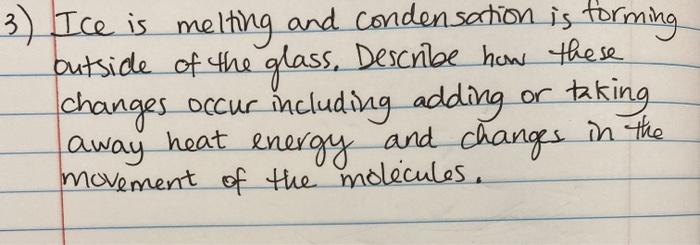 3) Ice is melting and condensation is forming
outside of the glass. Describe how these
changes occur including adding or taking
away heat energy and changes in the
movement of the molecules.